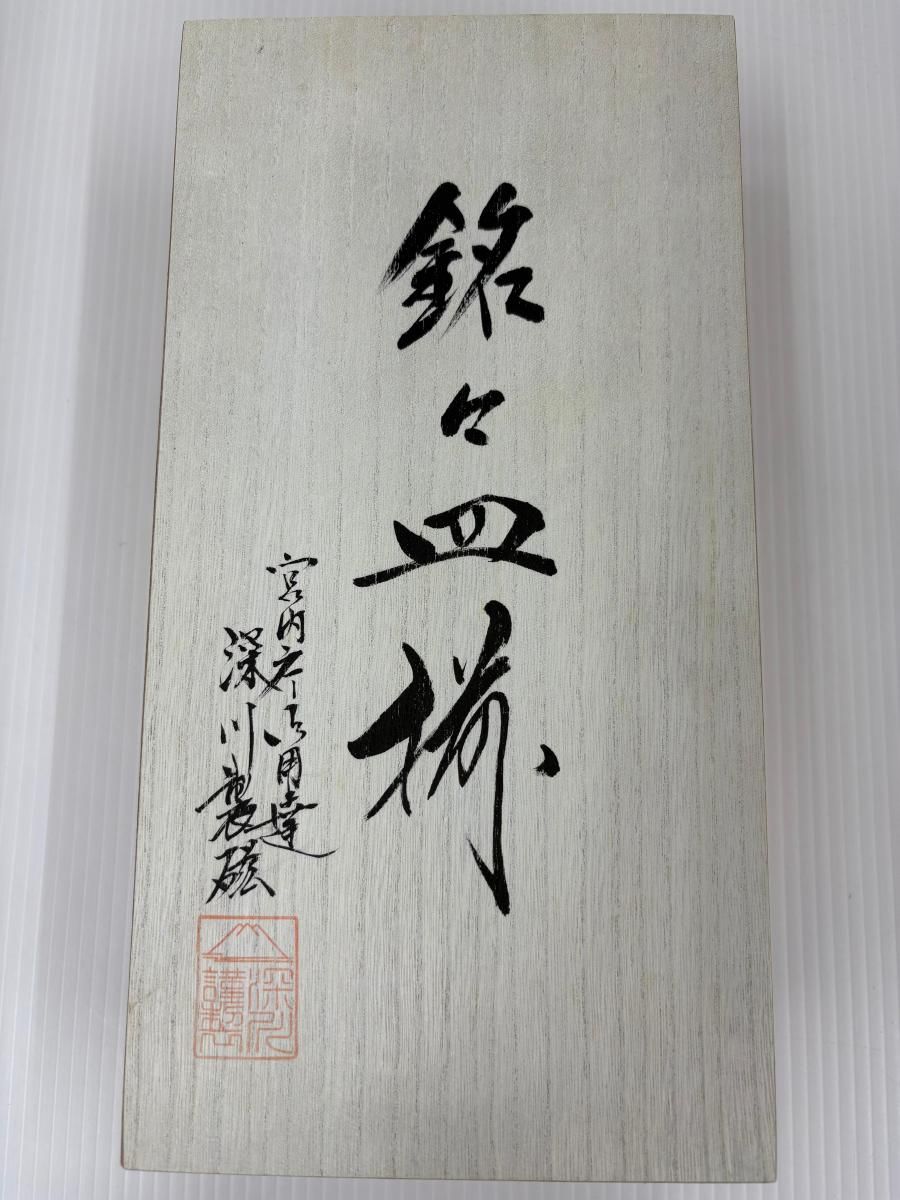 銘々皿揃
宮内庁御用達
深川製磁
深川
謹製